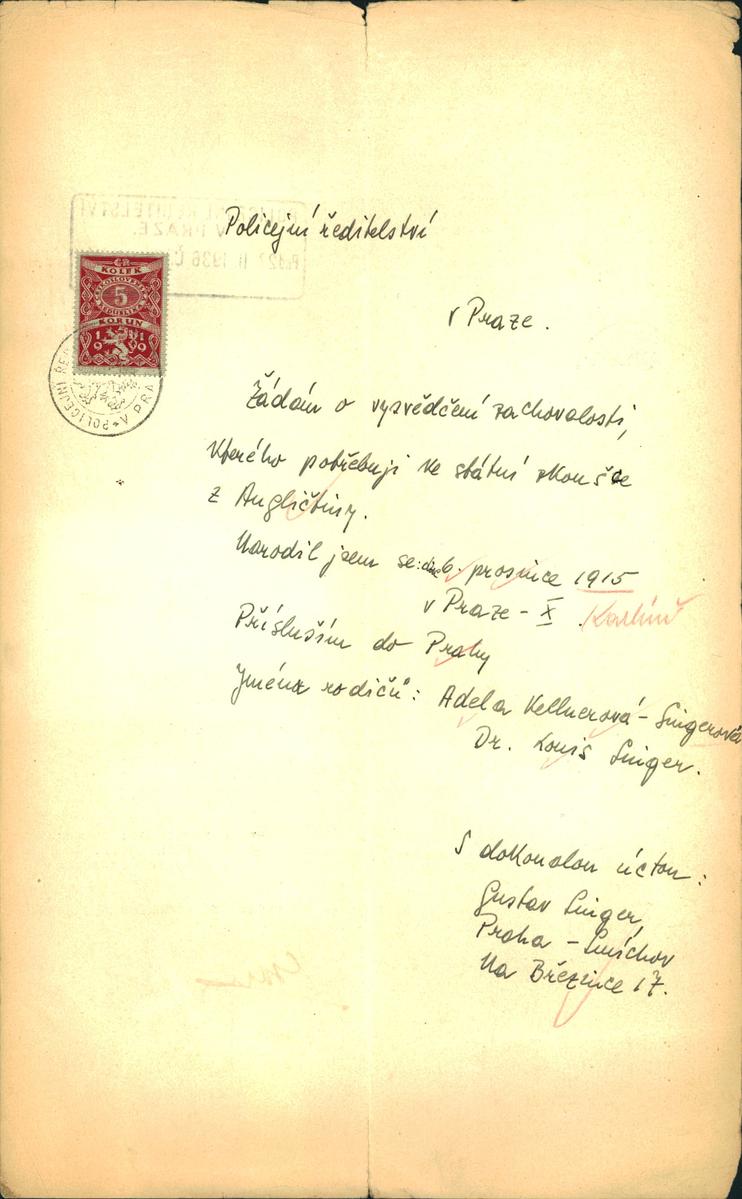 Policejní ředitelství
v Praze.
ČR
KOLEK
5
KORUN
POLICEJNÍ ŘED
V PRA
Žádám o vysvědčení zachovalosti,
kterého potřebuji ke státní zkoušce
z Angličtiny.
Narodil jsem se: dne 6. prosince 1915
v Praze - X Karlíně
Přísluším do Prahy
Jména rodičů: Adela Kellnerová - Singerová
Dr. Louis Singer.
S dokonalou úctou:
Gustav Singer,
Praha - Smíchov
Na Březince 17.